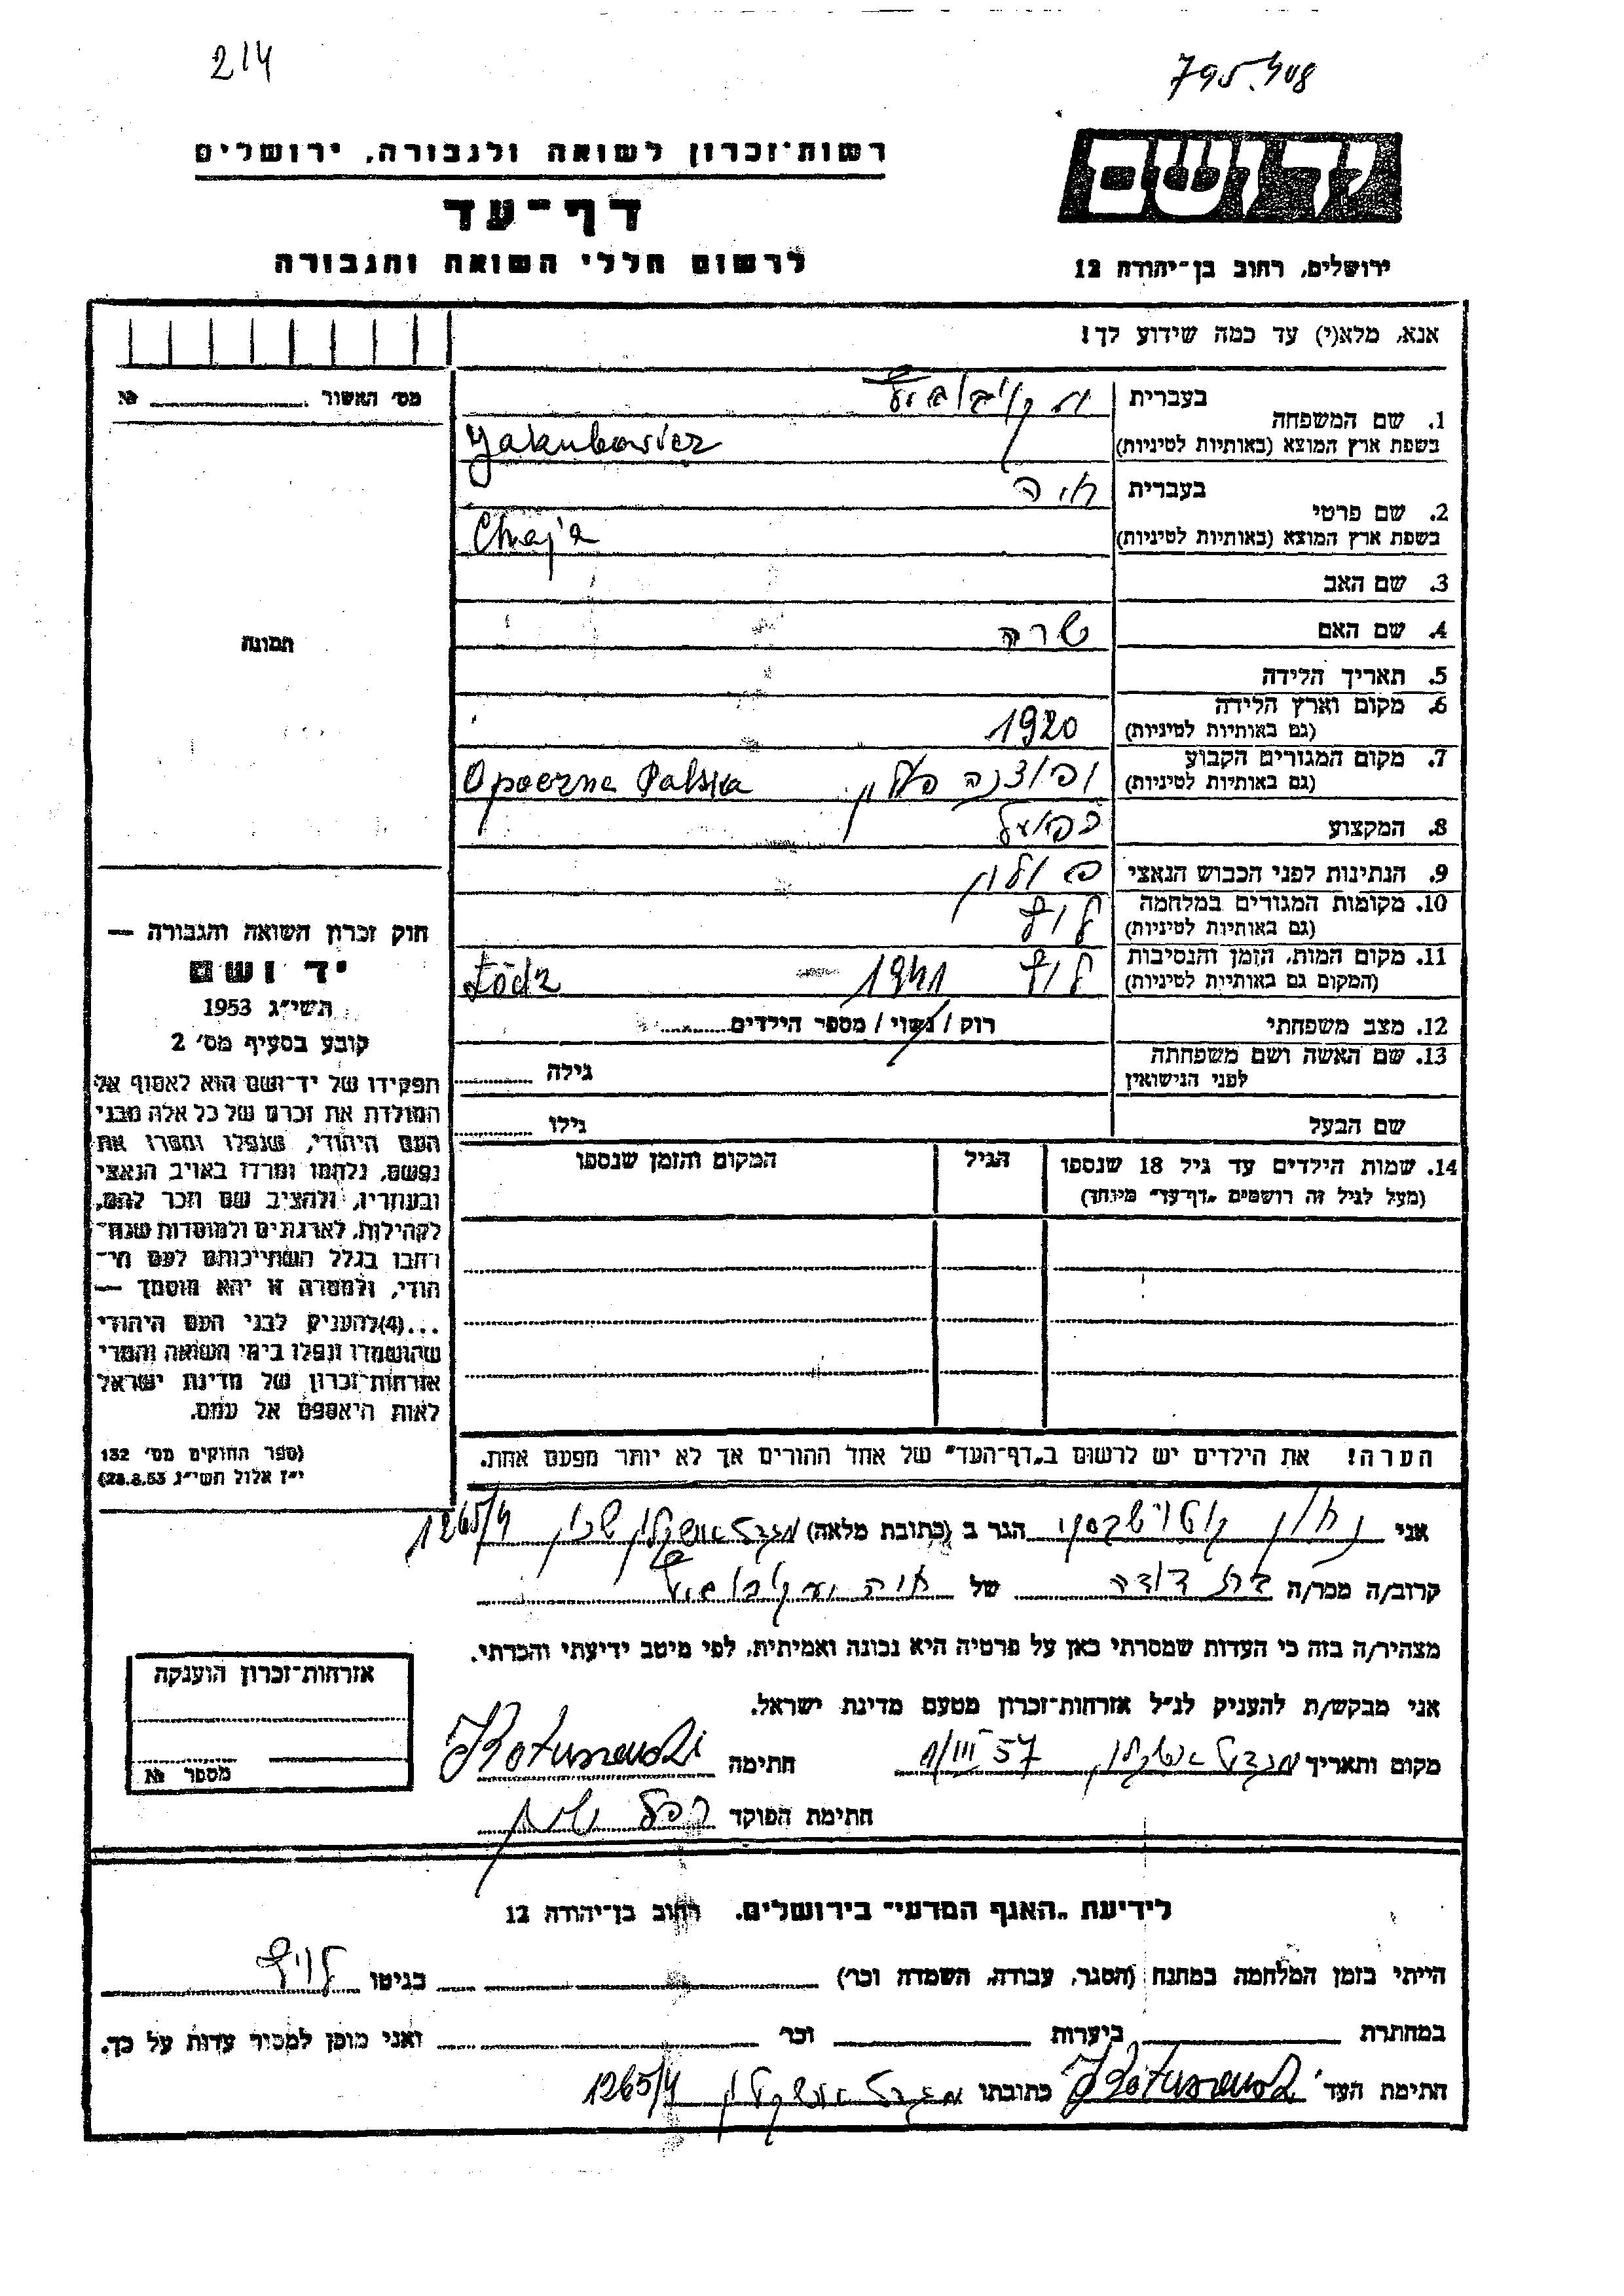 214
795.408
רשות־זכרון לשואה ולגבורה, ירושלים
דף־עד
לרשום חללי השואה והגבורה
יד ושם
ירושלים, רחוב בן־יהודה 12
אנא, מלא(י) עד כמה שידוע לך!
מס׳ האשור №
תמונה
1. שם המשפחה בעברית
בשפת ארץ המוצא (באותיות לטיניות) Jakubowicz
2. שם פרטי בעברית חיה
בשפת ארץ המוצא (באותיות לטיניות) Chaja
3. שם האב
4. שם האם שרה
5. תאריך הלידה
6. מקום וארץ הלידה
(גם באותיות לטיניות) 1920
7. מקום המגורים הקבוע
(גם באותיות לטיניות) פולין Opoczna Polska
8. המקצוע
9. הנתינות לפני הכבוש הנאצי פולין
10. מקומות המגורים במלחמה
(גם באותיות לטיניות) לודז׳
11. מקום המות, הזמן והנסיבות
(המקום גם באותיות לטיניות) לודז׳ 1941 Łódz
12. מצב משפחתי רוק / נשוי / מספר הילדים
13. שם האשה ושם משפחתה
לפני הנישואין גילה
שם הבעל גילו
14. שמות הילדים עד גיל 18 שנספו הגיל המקום והזמן שנספו
(מעל לגיל זה רושמים „דף־עד״ מיוחד)
הערה! את הילדים יש לרשום ב„דף־העד״ של אחד ההורים אך לא יותר מפעם אחת.
חוק זכרון השואה והגבורה —
יד ושם
תשי״ג 1953
קובע בסעיף מס׳ 2
תפקידו של יד־ושם הוא לאסוף אל
המולדת את זכרם של כל אלה מבני
העם היהודי, שנפלו ומסרו את
נפשם, נלחמו ומרדו באויב הנאצי
ובעוזריו, ולהציב שם וזכר להם,
לקהילות, לארגונים ולמוסדות שנח־
רבו בגלל השתייכותם לעם הי־
הודי, ולמטרה זו יהא מוסמך —
...(4)להעניק לבני העם היהודי
שהושמדו ונפלו בימי השואה והמרי
אזרחות־זכרון של מדינת ישראל
לאות היאספם אל עמם.
(ספר החוקים מס׳ 132
י״ז אלול תשי״ג 28.8.53)
אני הגר ב (כתובת מלאה) מגדל אשקלון שכון 1265/4
קרוב/ה מכר/ה בת דודה של חיה
מצהיר/ה בזה כי העדות שמסרתי כאן על פרטיה היא נכונה ואמיתית, לפי מיטב ידיעתי והכרתי.
אני מבקש/ת להעניק לנ״ל אזרחות־זכרון מטעם מדינת ישראל.
מקום ותאריך מגדל אשקלון 1/III 57 חתימה
חתימת הפוקד
אזרחות־זכרון הוענקה
מספר №
לידיעת „האגף המדעי״ בירושלים. רחוב בן־יהודה 12
הייתי בזמן המלחמה במחנה (הסגר, עבודה, השמדה וכו׳) בגיטו לודז׳
במחתרת ביערות וכו׳ ואני מוכן למסור עדות על כך.
חתימת העד כתובתו מגדל אשקלון 1265/4